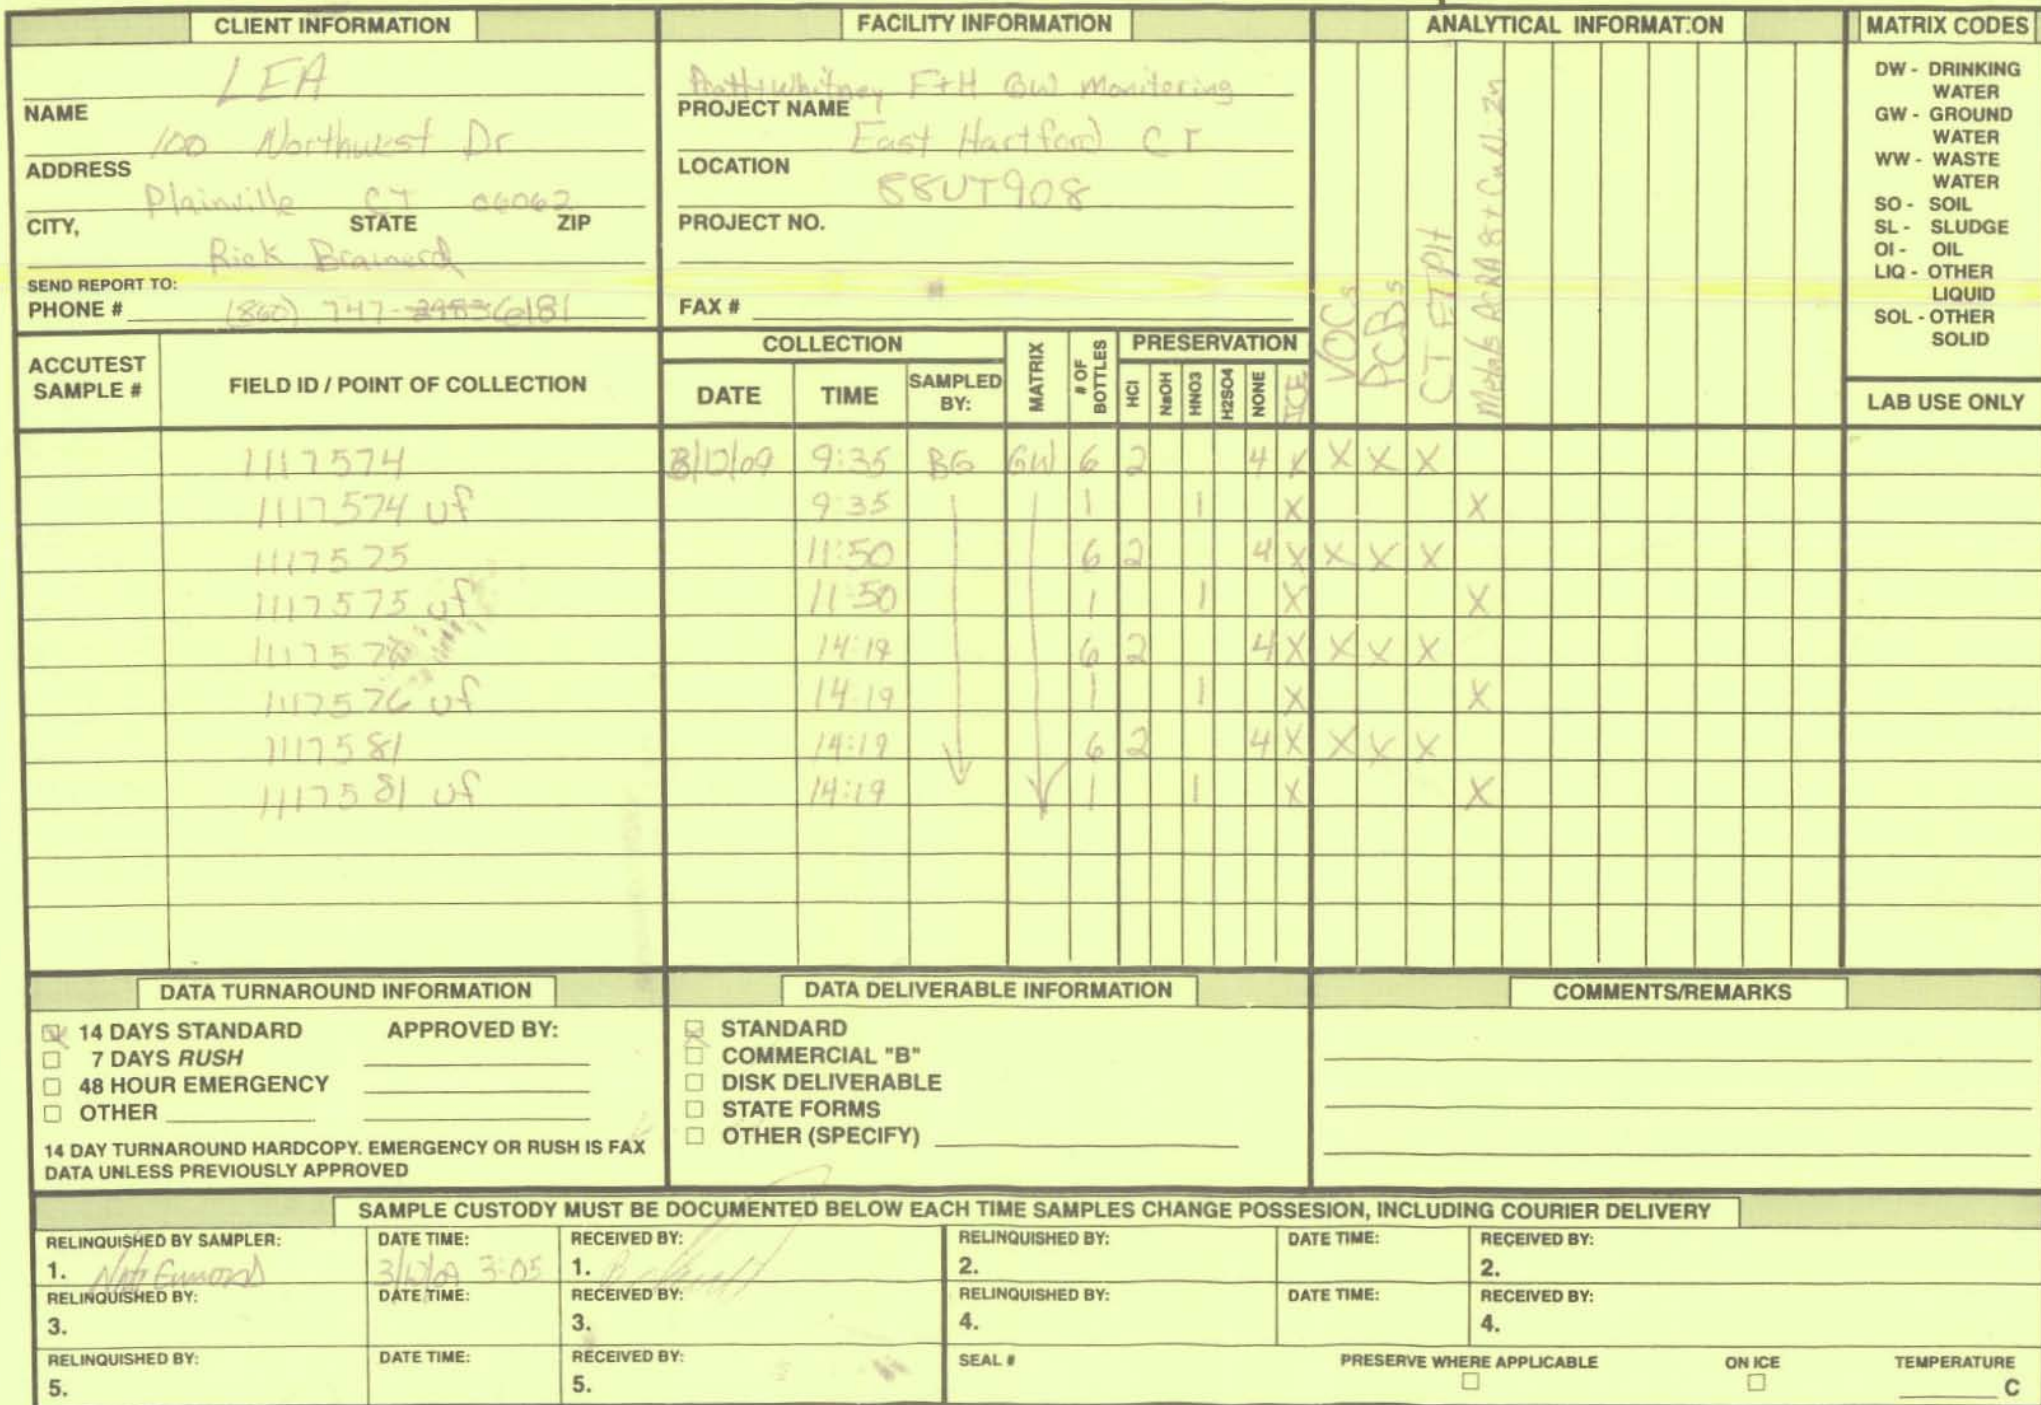 CLIENT INFORMATION
LEA
NAME
100 Northwest Dr
ADDRESS
Plainville CT 06062
CITY, STATE ZIP
Rick Brainerd
SEND REPORT TO:
PHONE # (860) 747-6181
FACILITY INFORMATION
Pratt+Whitney F+H GW Monitoring
PROJECT NAME
East Hartford CT
LOCATION
88UT908
PROJECT NO.
FAX #
ANALYTICAL INFORMATION
VOCs
PCBs
CT ETPH
Metals RCRA 8+
MATRIX CODES
DW - DRINKING
WATER
GW - GROUND
WATER
WW - WASTE
WATER
SO - SOIL
SL - SLUDGE
OI - OIL
LIQ - OTHER
LIQUID
SOL - OTHER
SOLID
LAB USE ONLY
ACCUTEST
SAMPLE #
FIELD ID / POINT OF COLLECTION
COLLECTION
DATE TIME SAMPLED
BY:
MATRIX
# OF
BOTTLES
PRESERVATION
HCl NaOH HNO3 H2SO4 NONE ICE
1117574 3/12/09 9:35 BG GW 6 2 4 X X X X
1117574 uf 9:35 1 1 X X
1117575 11:50 6 2 4 X X X X
1117575 uf 11:50 1 1 X X
14:19 6 2 4 X X X X
1117576 uf 14:19 1 1 X X
1117581 14:19 6 2 4 X X X X
1117581 uf 14:19 1 1 X X
DATA TURNAROUND INFORMATION
14 DAYS STANDARD APPROVED BY:
7 DAYS RUSH
48 HOUR EMERGENCY
OTHER
14 DAY TURNAROUND HARDCOPY. EMERGENCY OR RUSH IS FAX
DATA UNLESS PREVIOUSLY APPROVED
DATA DELIVERABLE INFORMATION
STANDARD
COMMERCIAL "B"
DISK DELIVERABLE
STATE FORMS
OTHER (SPECIFY)
COMMENTS/REMARKS
SAMPLE CUSTODY MUST BE DOCUMENTED BELOW EACH TIME SAMPLES CHANGE POSSESION, INCLUDING COURIER DELIVERY
RELINQUISHED BY SAMPLER: DATE TIME: RECEIVED BY: RELINQUISHED BY: DATE TIME: RECEIVED BY:
1. 3:05 1. 2. 2.
RELINQUISHED BY: DATE TIME: RECEIVED BY: RELINQUISHED BY: DATE TIME: RECEIVED BY:
3. 3. 4. 4.
RELINQUISHED BY: DATE TIME: RECEIVED BY: SEAL # PRESERVE WHERE APPLICABLE ON ICE TEMPERATURE
5. 5. C